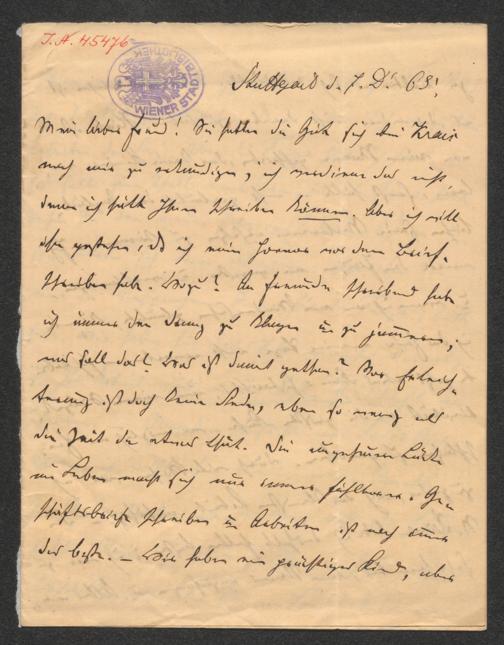 I.N. 45476
WIENER STADTBIBLIOTHEK
Stuttgart d. 7. Dz 63!
Mein lieber Freund! Sie hatten die Güte sich bei Krais
nach mir zu erkundigen; ich verdiene das nicht,
denn ich hätte Ihnen schreiben können. Aber ich will
offen gestehen, daß ich einen Horror vor dem Brief-
schreiben habe. Wozu? An Freunde schreibend habe
ich immer den Drang zu klagen u zu jammern,
was soll das? Was ist damit gethan? Das Erleich-
ist doch keine, eben so wenig als
die Zeit die etwas thut. Die ungeheure Lücke
im Leben macht sich nur immer fühlbarer. Ge-
schäftsbriefe schreiben u Arbeiten ist noch immer
das beste. – Wir haben ein prächtiges Kind, aber